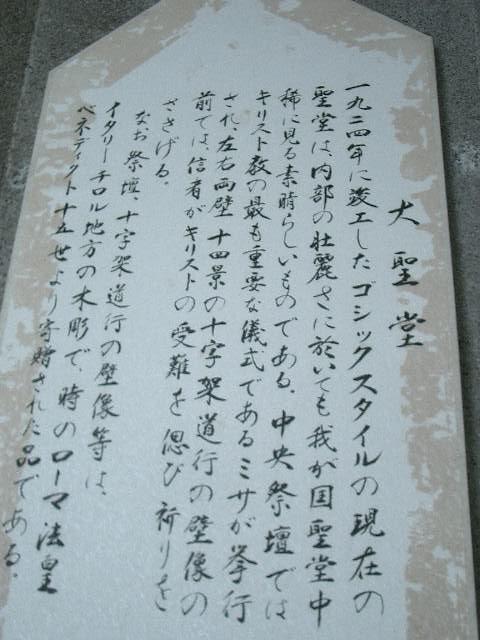 大聖堂
一九二四年に竣工したゴシックスタイルの現在の
聖堂は、内部の壮麗さに於いても我が国聖堂中
稀に見る素晴らしいものである。中央祭壇では
キリスト教の最も重要な儀式であるミサが挙行
され、左右両壁十四景の十字架道行の壁像の
前では、信者がキリストの受難を偲び祈りを
ささげる。
なお祭壇、十字架道行の壁像等は、
イタリーチロル地方の木彫で、時のローマ法皇
ベネディクト十五世より寄贈された品である。